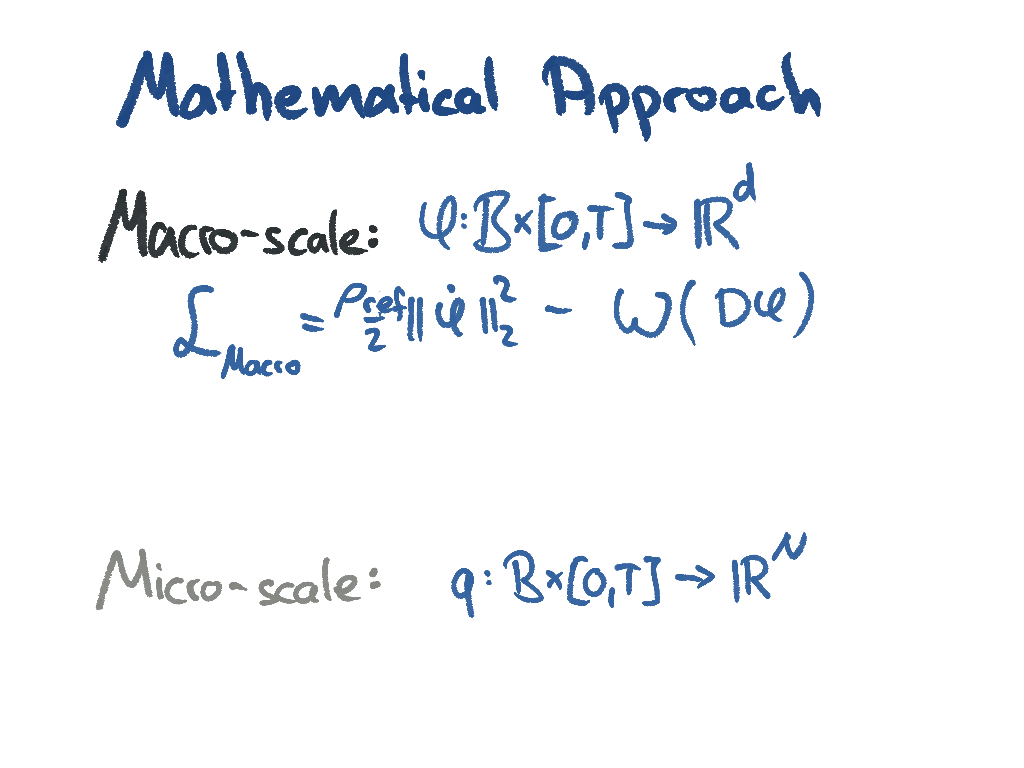 Mathematical Approach
Macro-scale: φ: B×[0,T] → ℝ^d
ℒ_Macro = ρ_ref/2 ‖φ̇‖₂² − W(Dφ)
Micro-scale: q: B×[0,T] → ℝ^N